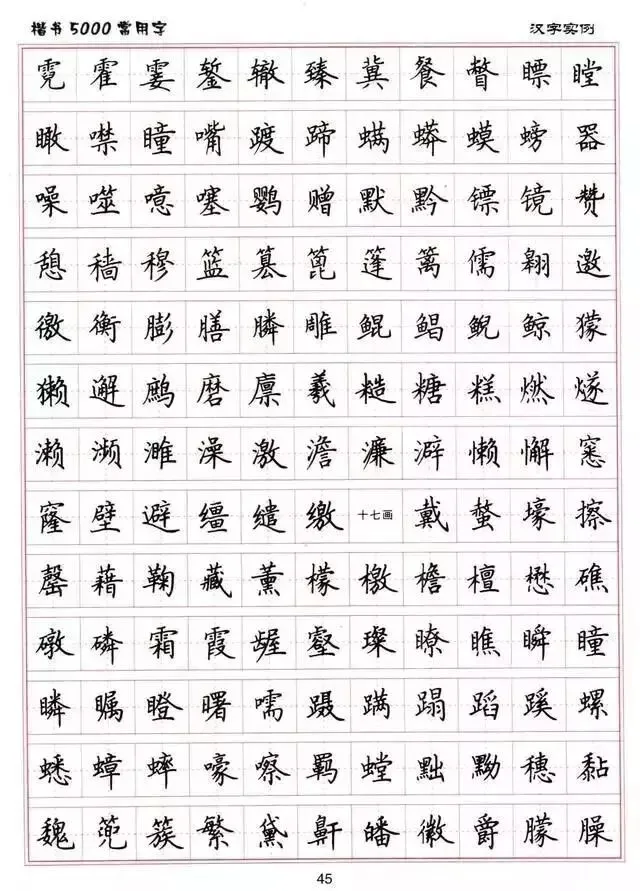 楷书5000常用字 汉字实例
霓 霍 霎 錾 辙 臻 冀 餐 瞥 瞟 瞠
瞰 噤 瞳 嘴 踱 蹄 螨 蟒 蟆 螃 器
噪 噬 噫 噻 鹦 赠 默 黔 镖 镜 赞
憩 穑 穆 篮 篡 篦 篷 篱 儒 翱 邀
徼 衡 膨 膳 膦 雕 鲲 鲳 鲵 鲸 獴
獭 邂 鹧 磨 廪 羲 糙 糖 糕 燃 燧
濑 濒 濉 澡 激 澹 濂 澼 懒 懈 窸
窿 壁 避 缰 缱 缴 十七画 戴 螯 壕 擦
罄 藉 鞠 藏 薰 檬 檄 檐 檀 懋 礁
磷 霜 霞 龌 壑 璨 瞭 瞧 瞬 瞳
瞵 瞩 瞪 曙 嚅 蹑 蹒 蹋 蹈 蹊 螺
蟋 蟑 蟀 嚎 嚓 羁 螳 黜 黝 穗 黏
魏 篼 簇 繁 黛 鼾 皤 徽 爵 朦 臊
45